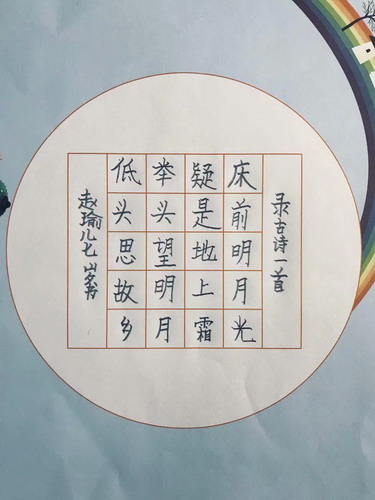 录古诗一首
床前明月光
疑是地上霜
举头望明月
低头思故乡
赵瑜儿七岁书